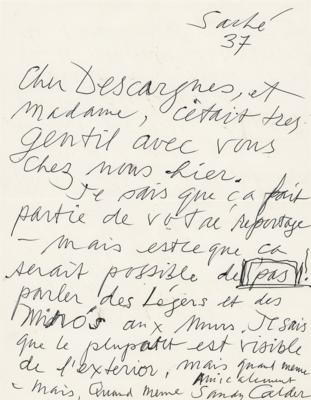 Saché
37
Cher Descargues, et
madame, c'était très
gentil avec vous
chez nous hier.
Je sais que ça fait
partie de votre reportage
— mais estce que ca
serait possible de pas!
parler des Légers et des
Miró's aux murs. Je sais
que le pluspart est visible
de l'exterior, mais quand meme
— Mais, Quand meme
Amicalement
Sandy Calder